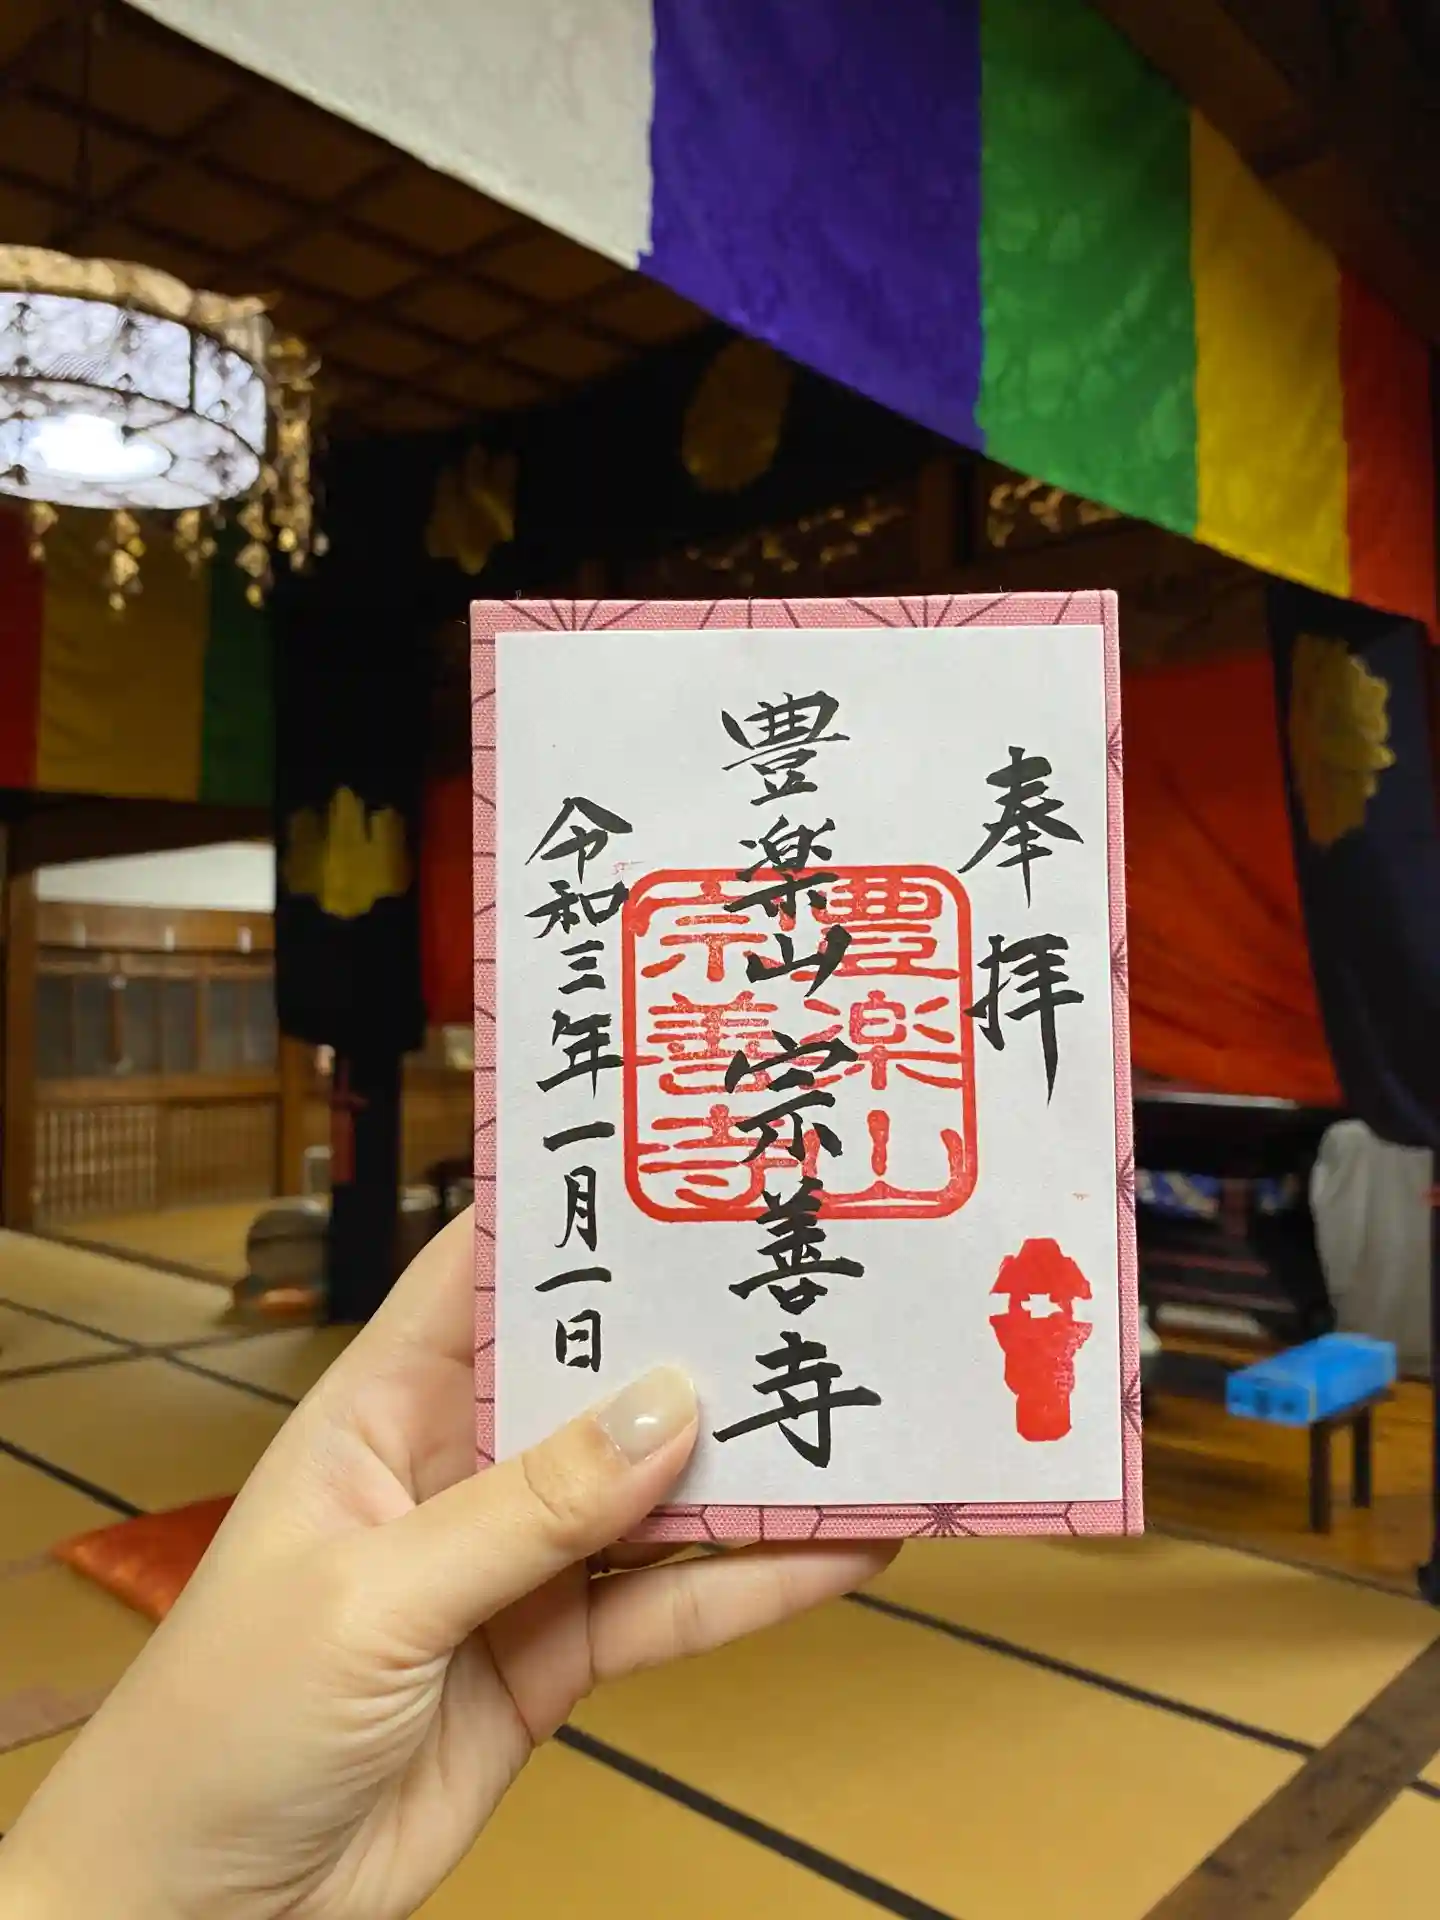 奉拝
豊楽山 宗善寺
豊楽山
宗善寺
令和三年一月一日